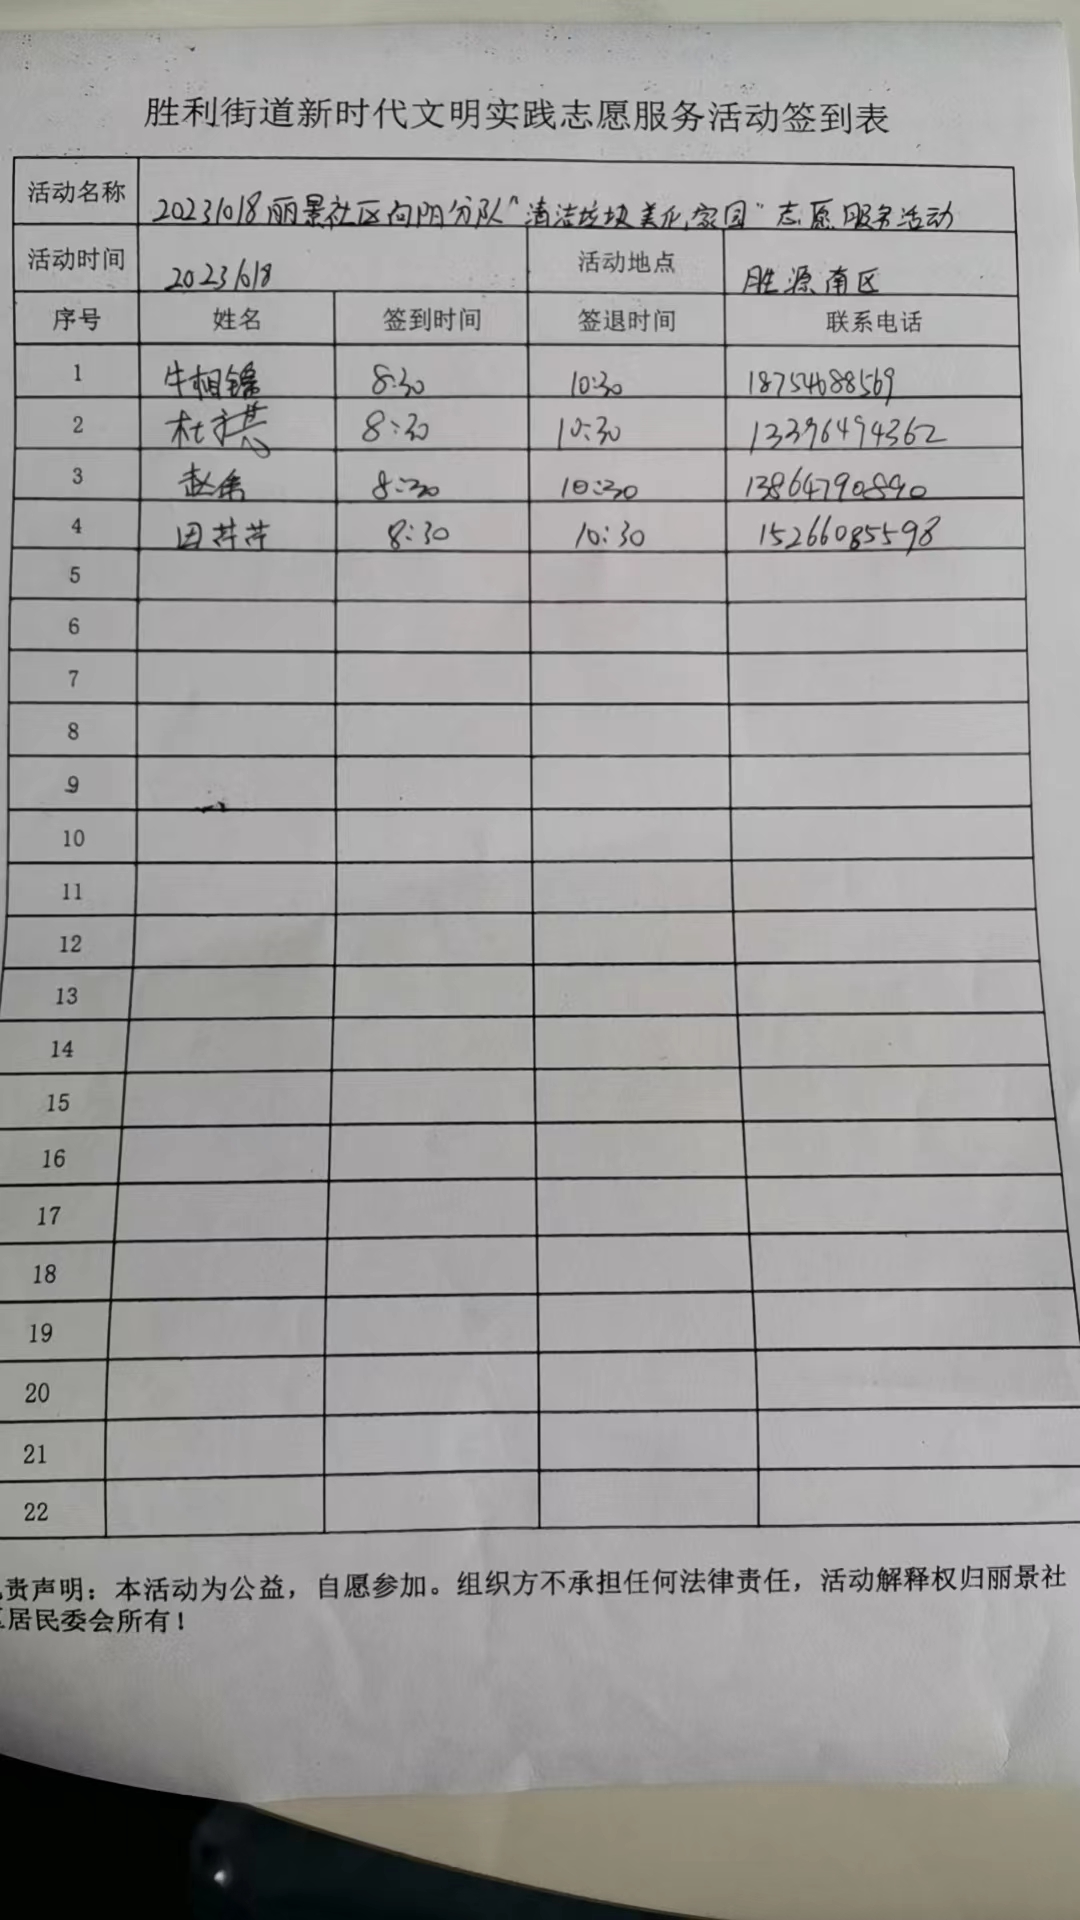 胜利街道新时代文明实践志愿服务活动签到表
活动名称 20231018丽景社区向阳分队"清洁垃圾美化家园"志愿服务活动
活动时间 20231018 活动地点 胜源南区
序号 姓名 签到时间 签退时间 联系电话
1 牛相锦 8:30 10:30 18754688569
2 杜 8:30 10:30 13396494362
3 赵 8:30 10:30 13864790890
4 田芹芹 8:30 10:30 15266085598
5
6
7
8
9
10
11
12
13
14
15
16
17
18
19
20
21
22
责声明：本活动为公益，自愿参加。组织方不承担任何法律责任，活动解释权归丽景社
区居民委会所有！